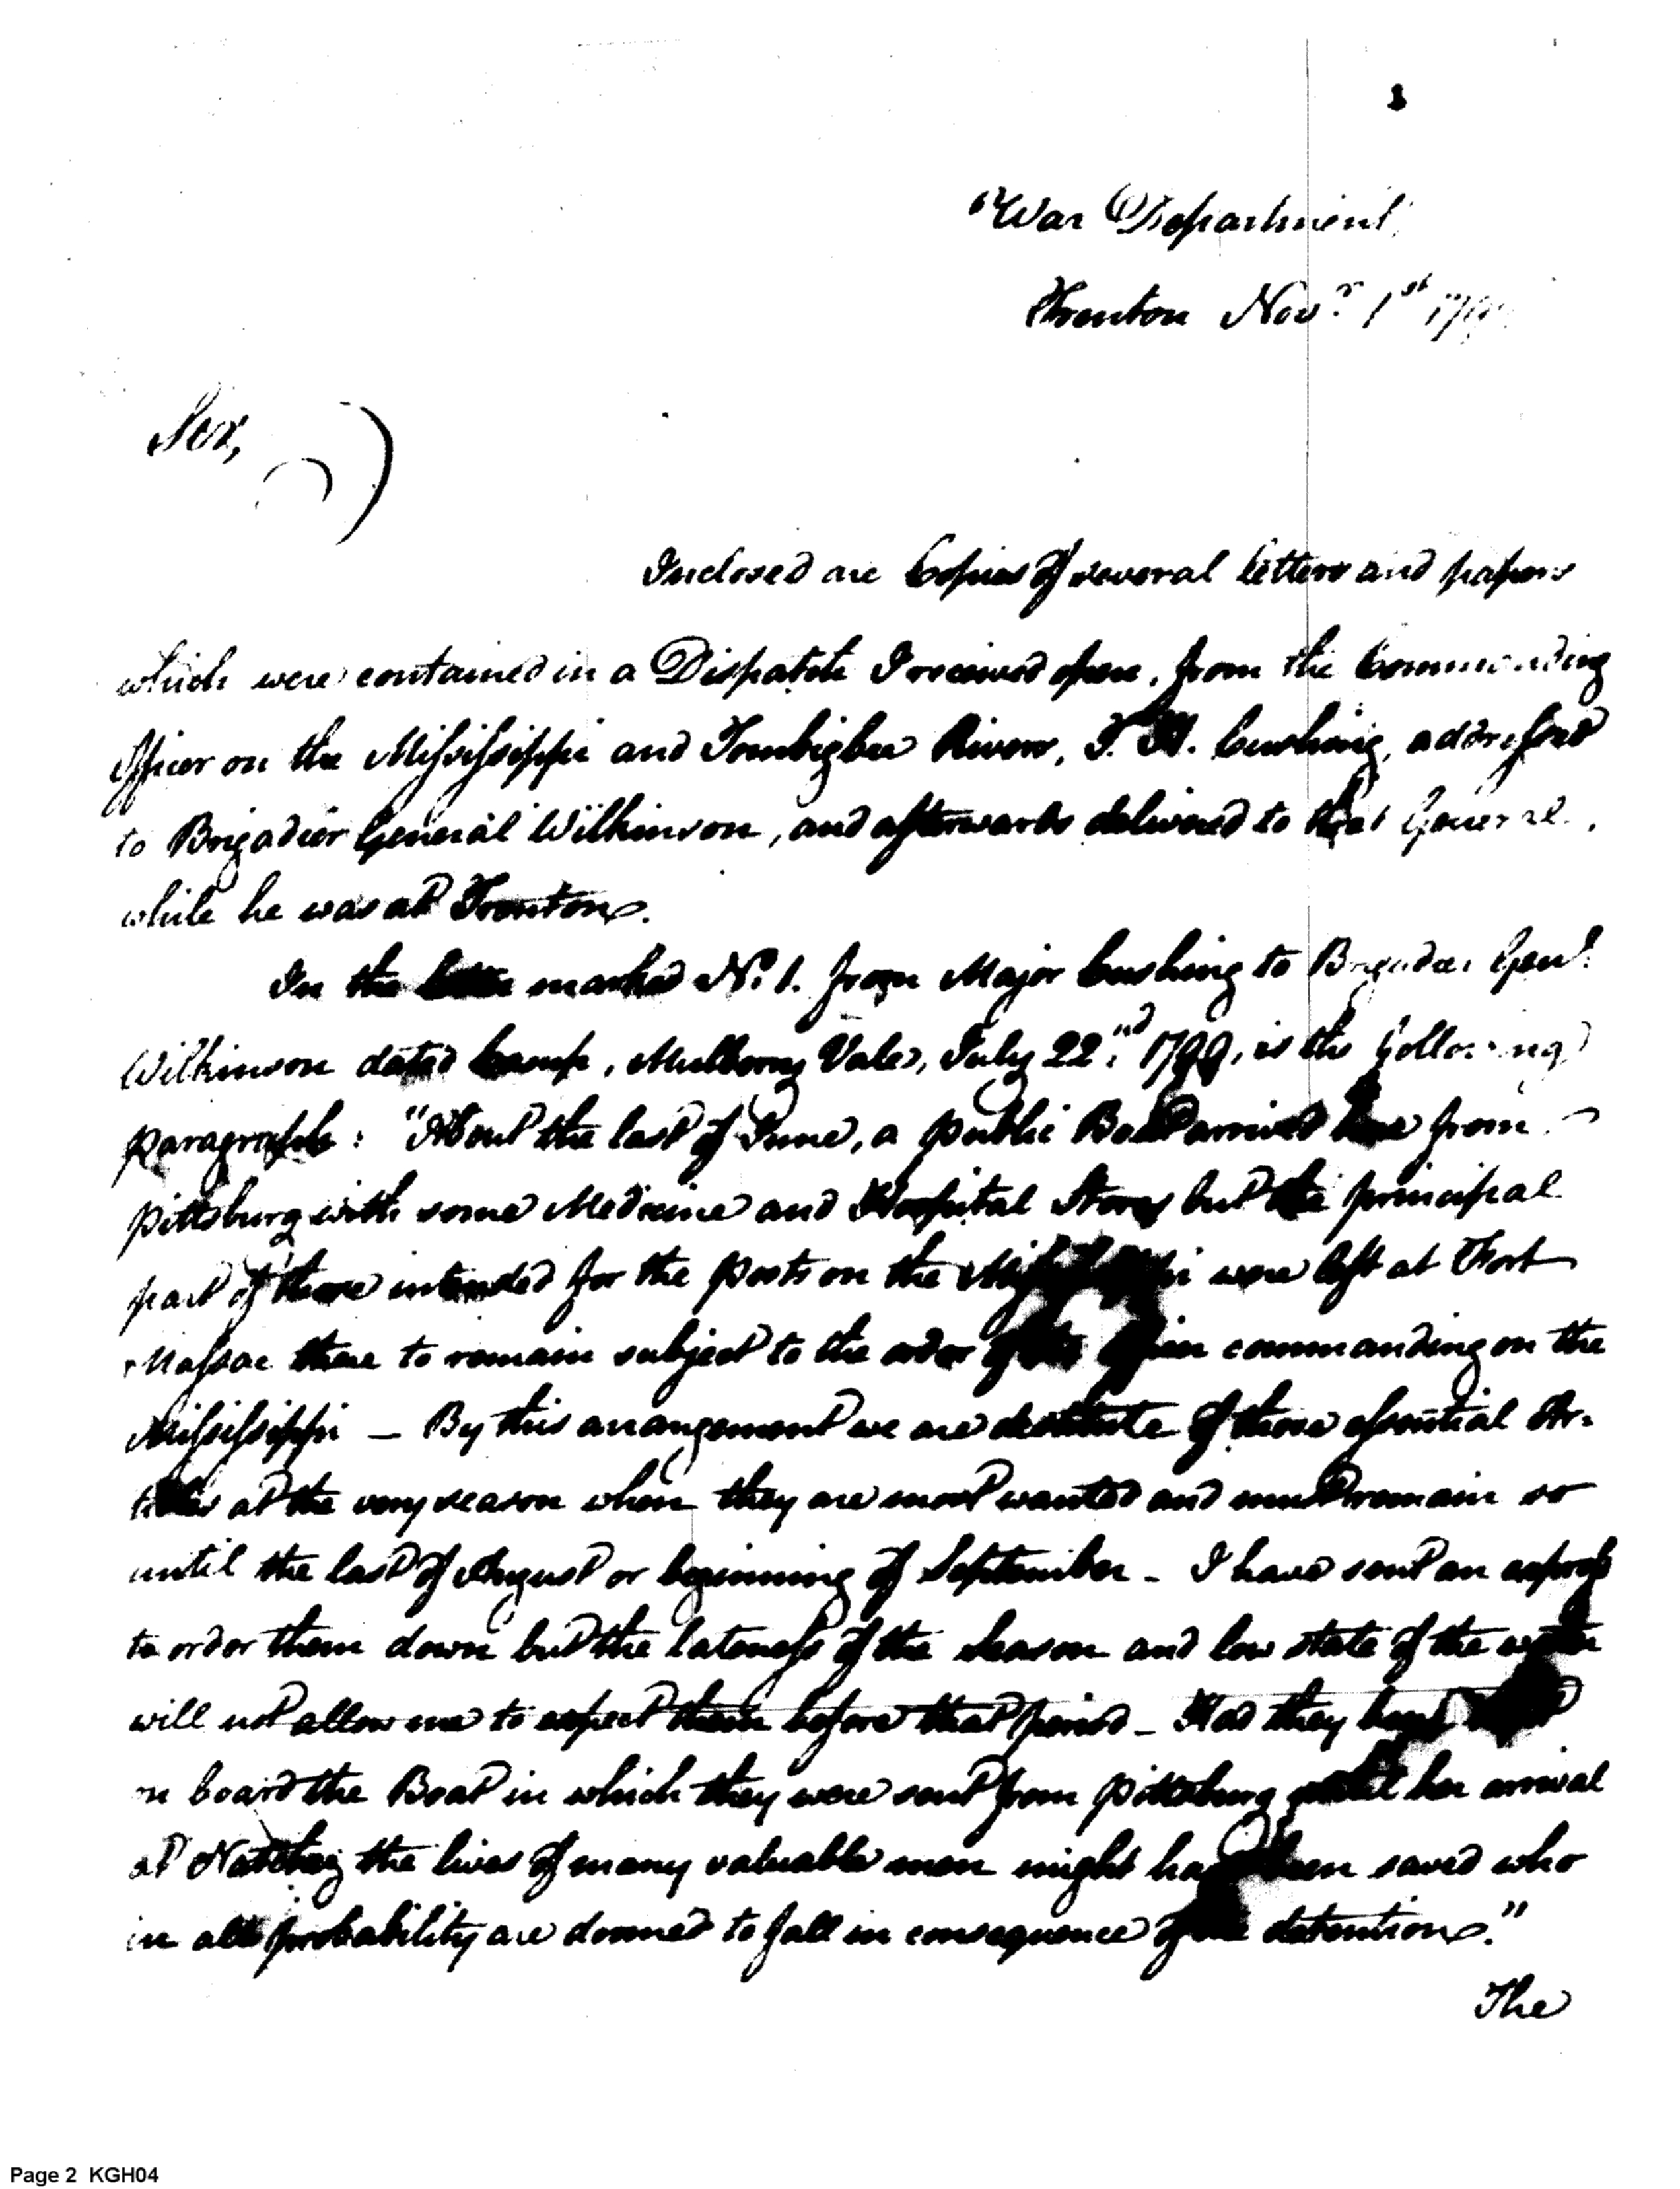 War Department,
Trenton Novr. 1st 179
Sir,
Inclosed are Copies of several letters and papers
which were contained in a Dispatch I received open, from the Commanding
Officer on the Mississippi and Tombigbee Rivers, T. H. Cushing, addressed
to Brigadier General Wilkinson, and afterwards delivered to that General,
while he was at Trenton.
In the letter marked No. 1. from Major Cushing to Brigadier Genl.
Wilkinson dated Camp, Mulberry Vale, July 22nd. 1799, is the following
paragraph: "About the last of June, a public Boat arrived here from
Pittsburg with some Medicine and Hospital Stores but the principal
part of those intended for the posts on the Mississippi were left at Fort
Massac there to remain subject to the order of the Officer commanding on the
Mississippi — By this arrangement we are destitute of those essential Ar-
ticles at the very season when they are most wanted and must remain so
until the last of August or beginning of September - I have sent an express
to order them down but the lateness of the season and low state of the water
will not allow me to expect them before that period - Had they been
on board the Boat in which they were sent from Pittsburg until her arrival
at Natchez the lives of many valuable men might have been saved who
in all probability are doomed to fall in consequence of the detention."
The
Page 2 KGH04